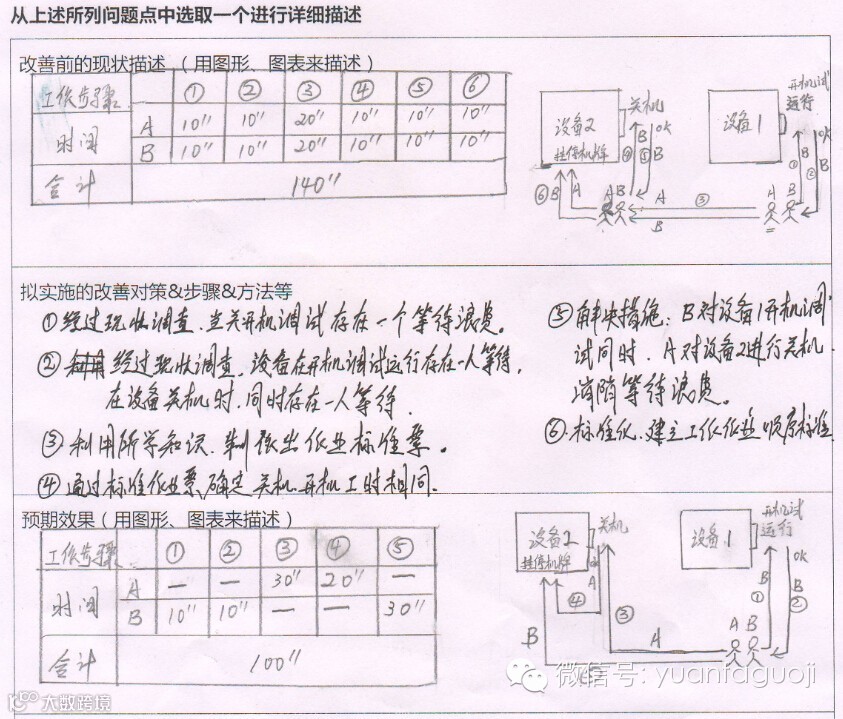 从上述所列问题点中选取一个进行详细描述
改善前的现状描述 （用图形、图表来描述）
工作步骤 ① ② ③ ④ ⑤ ⑥
时间 A 10" 10" 20" 10" 10" 10"
B 10" 10" 20" 10" 10" 10"
合计 140"
设备2
挂停机牌
关机
设备1
开机试
运行
ok
ok
④ B
① B
⑥ B
A
A B
A
③
B
A B
① B
② B
拟实施的改善对策&步骤&方法等
①经过现状调查，当关开机调试存在一个等待浪费。
②经过现状调查，设备在开机调试运行存在一人等待，
在设备关机时，同时存在一人等待．
③利用所学知识，制作出作业标准票。
④通过标准作业票，确定关机、开机工时相同．
⑤解决措施：B对设备1开机调
试同时，A对设备2进行关机，
消除等待浪费。
⑥标准化、建立工作作业顺序标准
预期效果（用图形、图表来描述）
工作步骤 ① ② ③ ④ ⑤
时间 A — — 30" 20" —
B 10" 10" — — 30"
合计 100"
设备2
挂停机牌
关机
ok
A
④
③
B
A
设备1
开机试
运行
ok
B
①
B
②
A B
微信号: yuanfdguoji
大数跨境